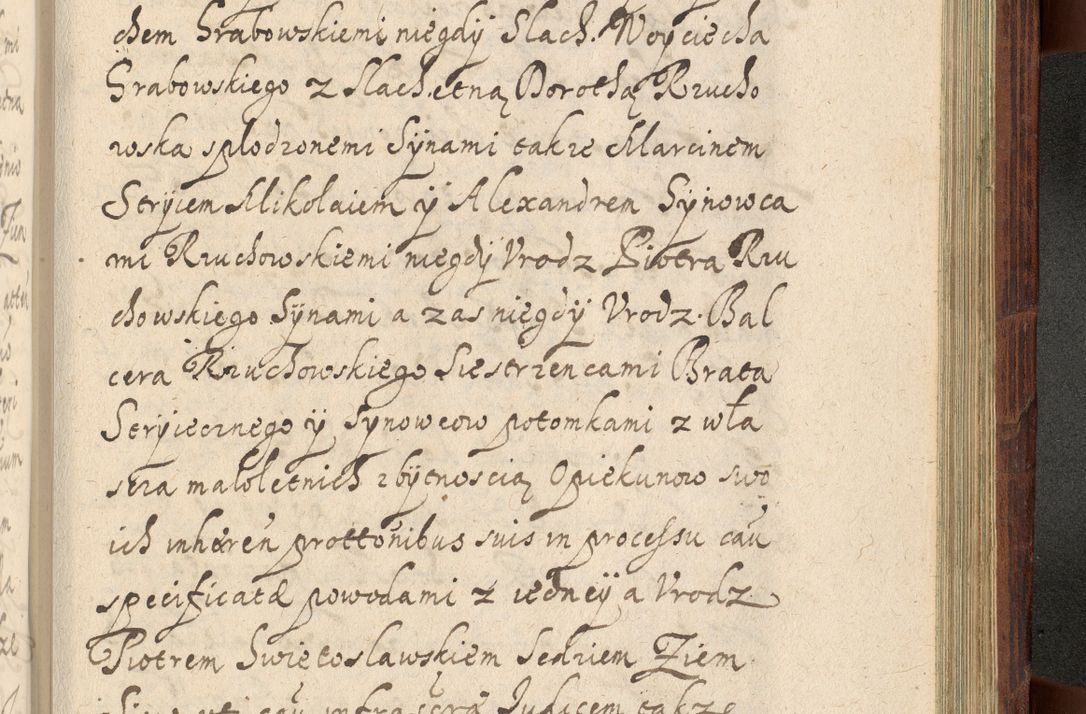 chem Grabowskiemi niegdÿ Slach. Woÿciecha
Grabowskiego z Slachetną Dorothą Rzucho
wska splodzonemi Sÿnami takze Marcinem
Strÿiem Mikołaiem ÿ Alexandrem Sÿnowca
mi Rzuchowskiemi niegdÿ Vrodz Piotra Rzu
chowskiego Sÿnami a zas niegdÿ Vrodz. Bal
cera Rzuchowskiego Siestrzencami Brata
Strÿiecznego ÿ Sÿnowcow potomkami z wła
scza maloletnich zbÿtnoscią Opiekunow swo
ich inhæren prottonibus suis in processu cau
specificatæ powodami z iedneÿ a Vrodz
Piotrem Swiętoslawskiem Sedziem Ziem
cau infra Judicem takze